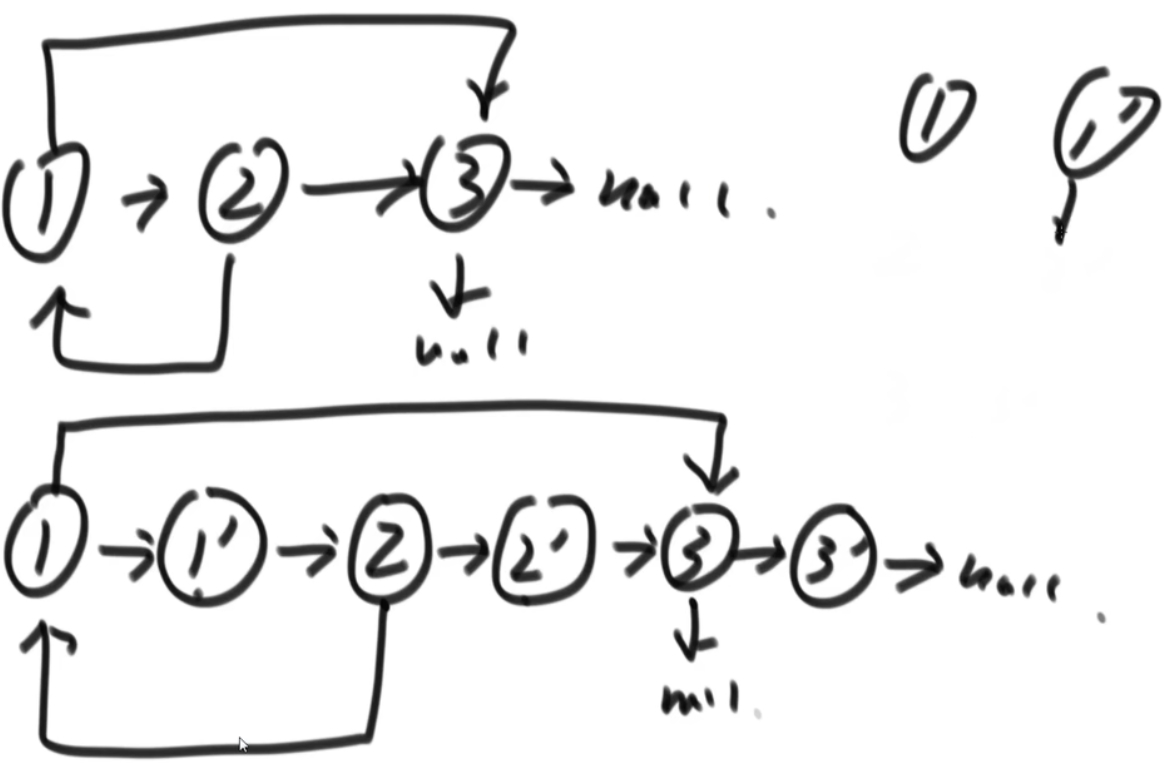 1 → 2 → 3 → null.
1 1'
null
1 → 1' → 2 → 2' → 3 → 3' → null.
null.